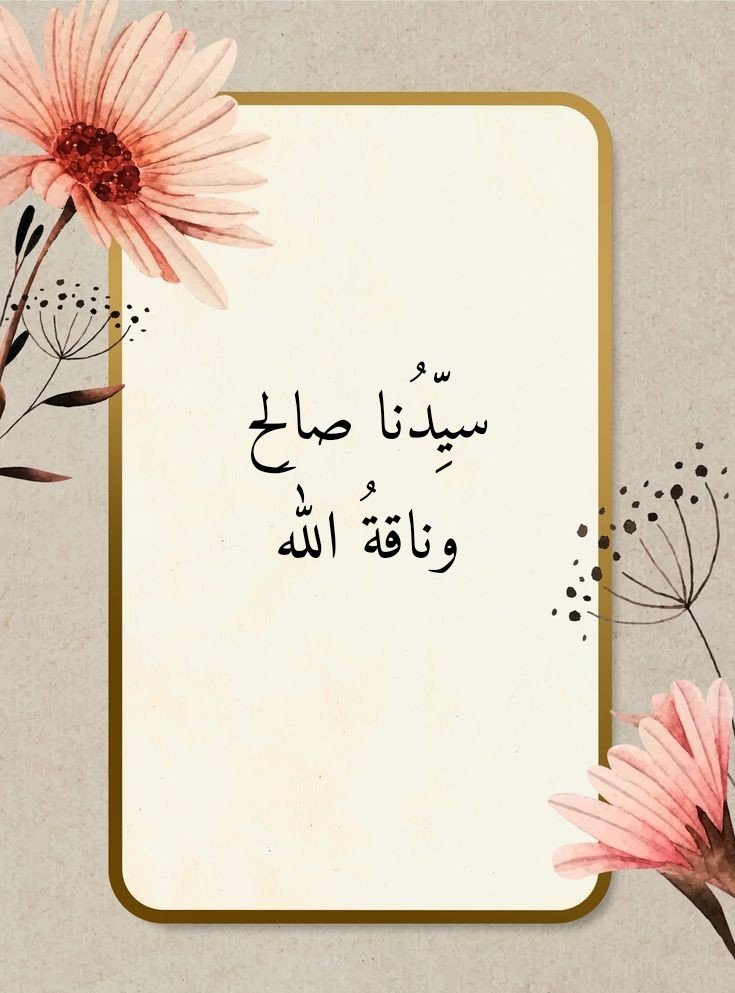 سيِّدُنا صالح
وناقةُ الله